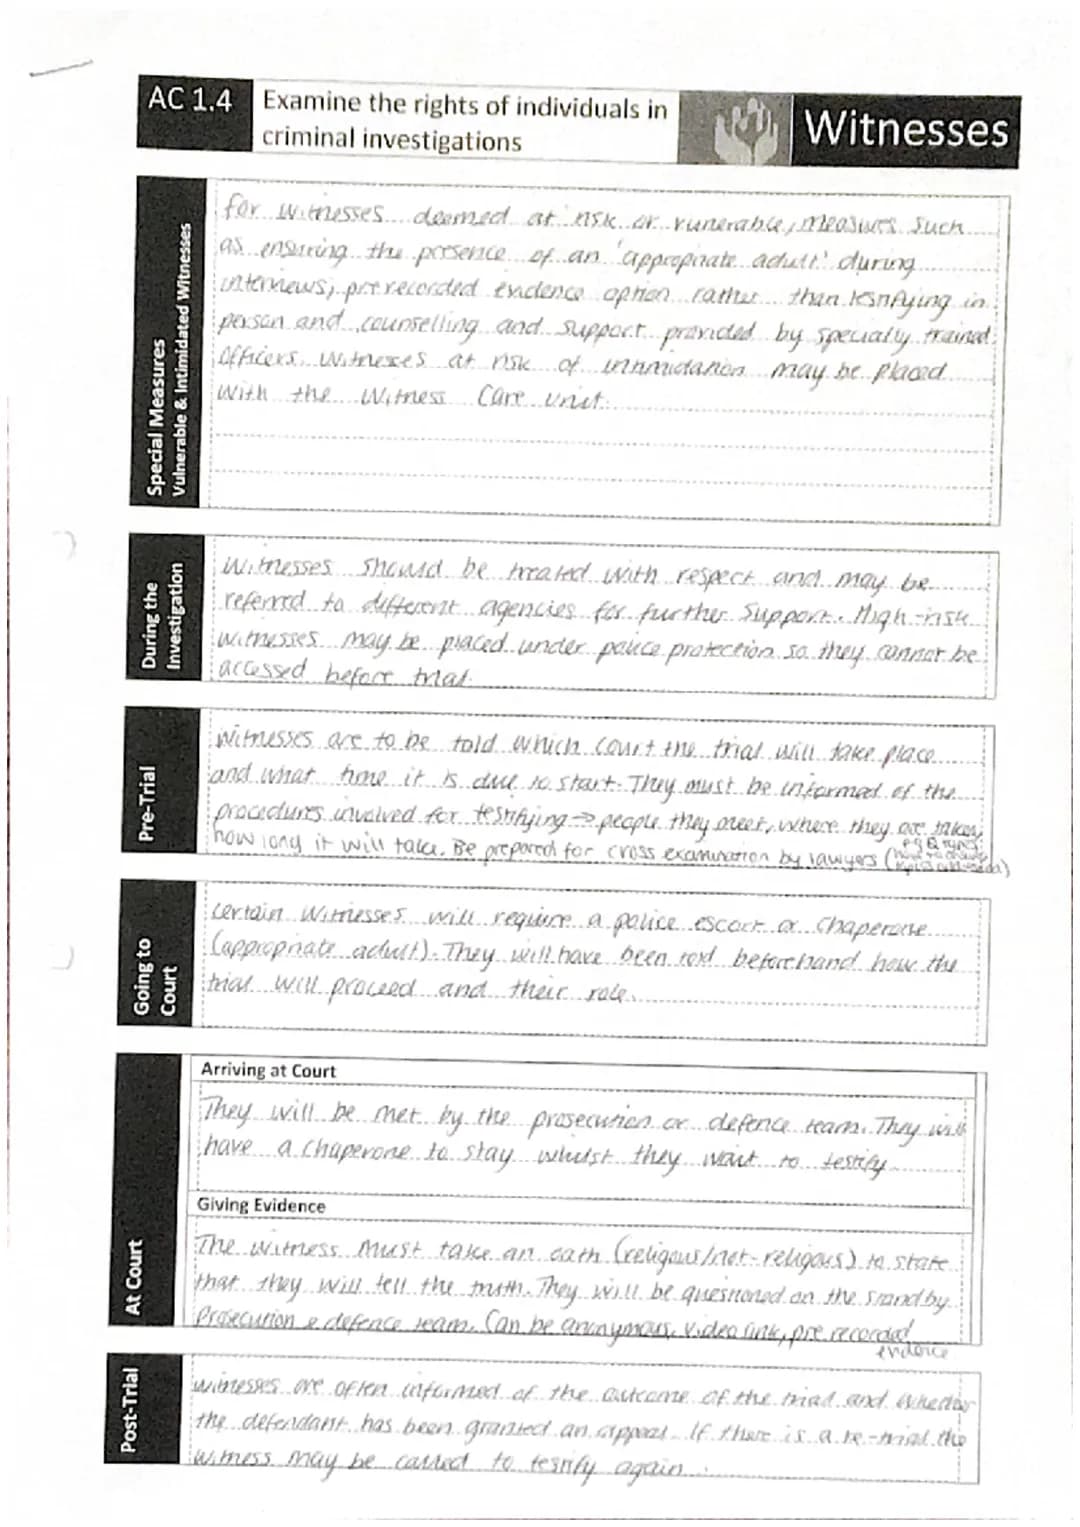 AC 1.4
Examine the rights of individuals in
criminal investigations
Witnesses
Special Measures
Vulnerable & Intimidated Witnesses
for witnesses deemed at risk or vunerable, measures such
as ensuring the presence of an 'appropriate adult' during
interviews, prerecorded evidence option rather than testifying in
person and counselling and support provided by specially trained
officers. Witnesses at risk of intimidation may be placed
with the Witness Care unit.
During the
Investigation
Witnesses should be treated with respect and may be
referred to different agencies for further support. High-risk
witnesses may be placed under police protection so they cannot be
accessed before trial.
Pre-Trial
Witnesses are to be told which court the trial will take place
and what time it is due to start. They must be informed of the
procedures involved for testifying → people they meet, where they are taken,
how long it will take. Be prepared for cross examination by lawyers (
Going to
Court
Certain witnesses will require a police escort or chaperone
(appropriate adult). They will have been told beforehand how the
trial will proceed and their role.
At Court
Arriving at Court
They will be met by the prosecution or defence team. They will
have a chaperone to stay whilst they wait to testify.
Giving Evidence
The witness must take an oath (religous/not-religous) to state
that they will tell the truth. They will be questioned on the stand by
prosecution & defence team. Can be anonymous, video link, pre recorded
evidence
Post-Trial
witnesses are often informed of the outcome of the trial and whether
the defendant has been granted an appeal. If there is a re-trial the
witness may be called to testify again.